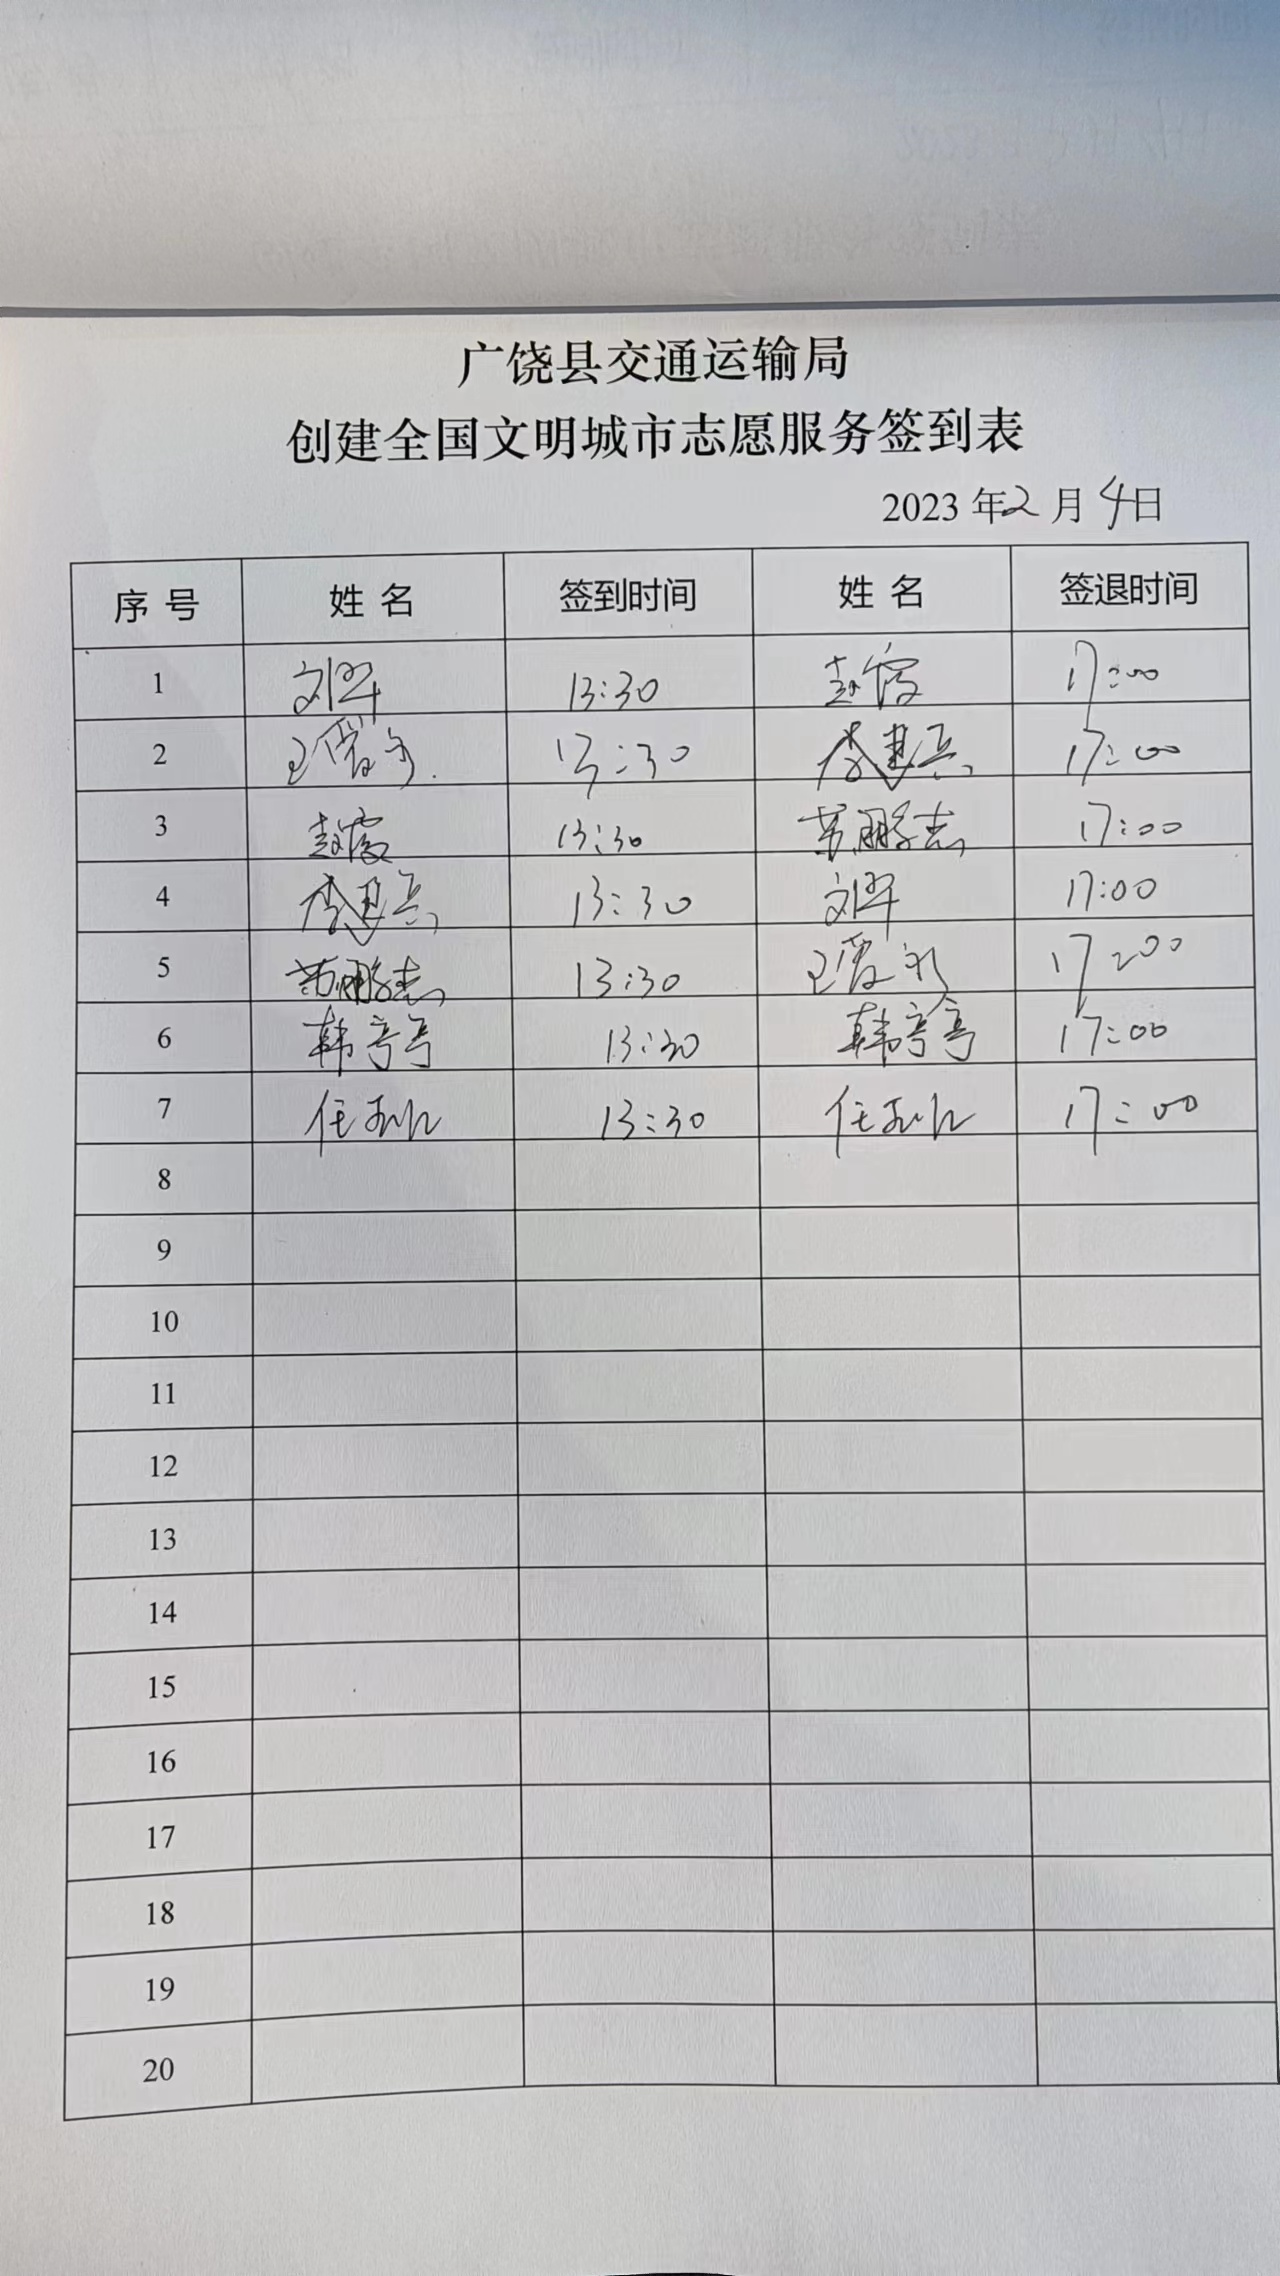 广饶县交通运输局
创建全国文明城市志愿服务签到表
2023 年 2 月 4 日
序号 姓名 签到时间 姓名 签退时间
1 13:30 赵霞 17:00
2 13:30 李建兵 17:00
3 赵霞 13:30 苏鹏志 17:00
4 李建兵 13:30 17:00
5 苏鹏志 13:30 17:00
6 韩亭亭 13:30 韩亭亭 17:00
7 任 13:30 任 17:00
8
9
10
11
12
13
14
15
16
17
18
19
20